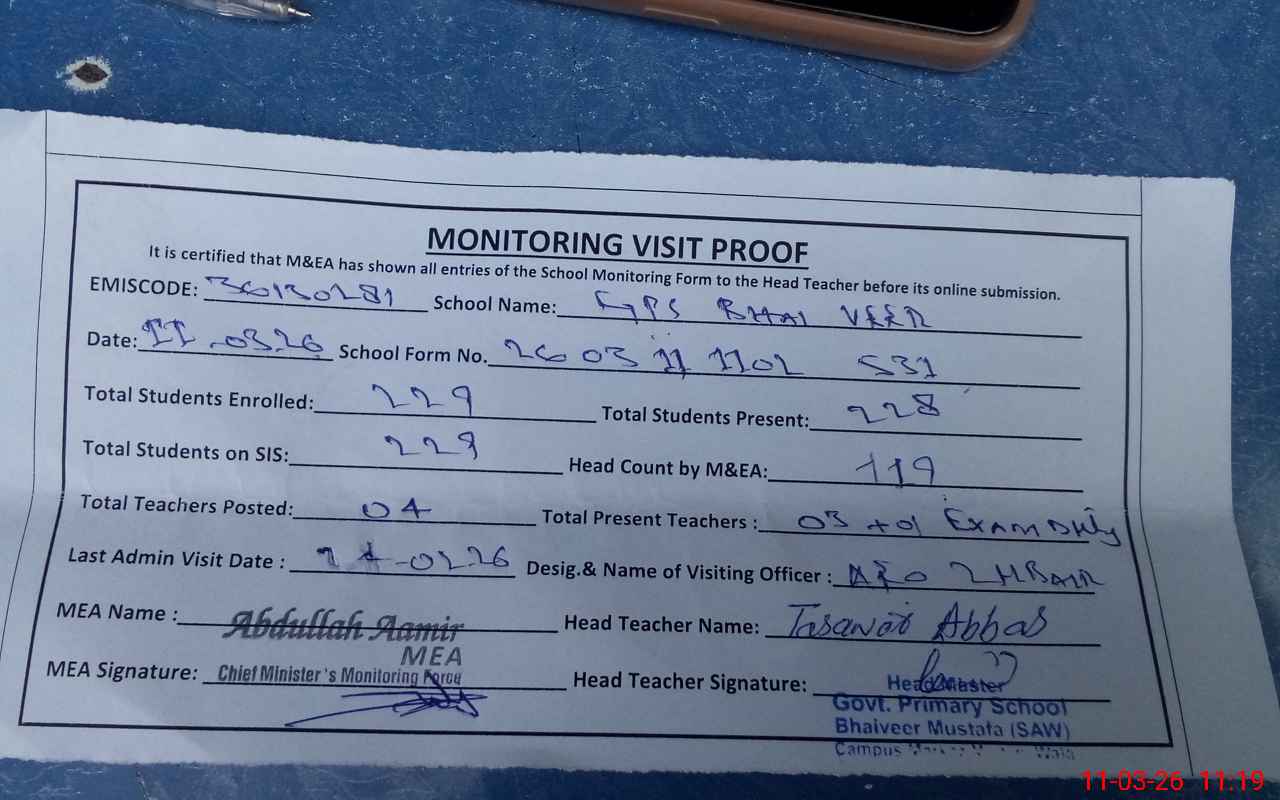 MONITORING VISIT PROOF
It is certified that M&EA has shown all entries of the School Monitoring Form to the Head Teacher before its online submission.
EMISCODE: 36130281 School Name: GPS BHAI VEER
Date: 11.0326 School Form No. 26 03 11 1102 531
Total Students Enrolled: 229 Total Students Present: 228
Total Students on SIS: 229 Head Count by M&EA: 119
Total Teachers Posted: 04 Total Present Teachers : 03 +01 EXAM Duty
Last Admin Visit Date : -0226 Desig.& Name of Visiting Officer :
MEA Name : Abdullah Aamir Head Teacher Name: Abbas
MEA
MEA Signature: Chief Minister's Monitoring Force Head Teacher Signature: Head Master
Govt. Primary School
Bhaiveer Mustafa (SAW)
Campus
11-03-26 11:19